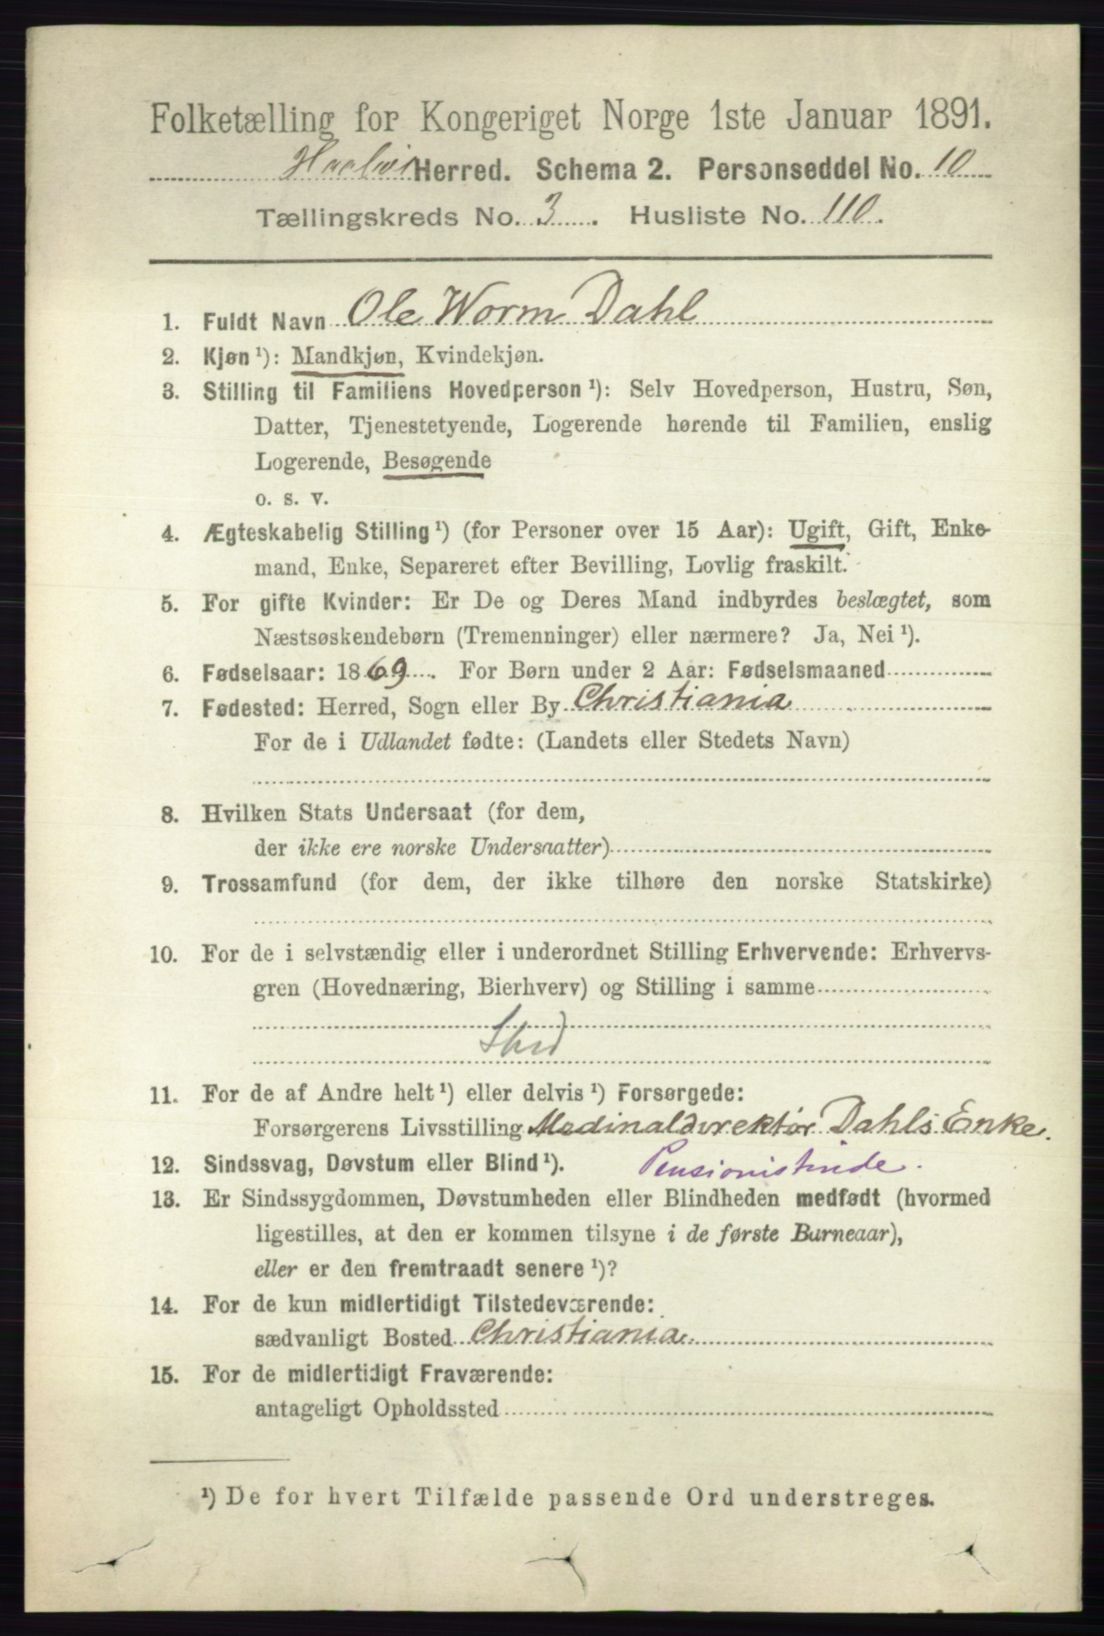 Folketælling for Kongeriget Norge 1ste Januar 1891.
Herred. Schema 2. Personseddel No. 10
Tællingskreds No. 3. Husliste No. 110.
1. Fuldt Navn Ole Worm Dahl
2. Kjøn ¹): Mandkjøn, Kvindekjøn.
3. Stilling til Familiens Hovedperson ¹): Selv Hovedperson, Hustru, Søn,
Datter, Tjenestetyende, Logerende hørende til Familien, enslig
Logerende, Besøgende
o. s. v.
4. Ægteskabelig Stilling ¹) (for Personer over 15 Aar): Ugift, Gift, Enke-
mand, Enke, Separeret efter Bevilling, Lovlig fraskilt.
5. For gifte Kvinder: Er De og Deres Mand indbyrdes beslægtet, som
Næstsøskendebørn (Tremenninger) eller nærmere? Ja, Nei ¹).
6. Fødselsaar: 1869. For Børn under 2 Aar: Fødselsmaaned
7. Fødested: Herred, Sogn eller By Christiania
For de i Udlandet fødte: (Landets eller Stedets Navn)
8. Hvilken Stats Undersaat (for dem,
der ikke ere norske Undersaatter)
9. Trossamfund (for dem, der ikke tilhøre den norske Statskirke)
10. For de i selvstændig eller i underordnet Stilling Erhvervende: Erhvervs-
gren (Hovednæring, Bierhverv) og Stilling i samme
Stud
11. For de af Andre helt ¹) eller delvis ¹) Forsørgede:
Forsørgerens Livsstilling Medinaldirektør Dahls Enke.
12. Sindssvag, Døvstum eller Blind ¹). Pensionistinde.
13. Er Sindssygdommen, Døvstumheden eller Blindheden medfødt (hvormed
ligestilles, at den er kommen tilsyne i de første Barneaar),
eller er den fremtraadt senere ¹)?
14. For de kun midlertidigt Tilstedeværende:
sædvanligt Bosted Christiania
15. For de midlertidigt Fraværende:
antageligt Opholdssted
¹) De for hvert Tilfælde passende Ord understreges.